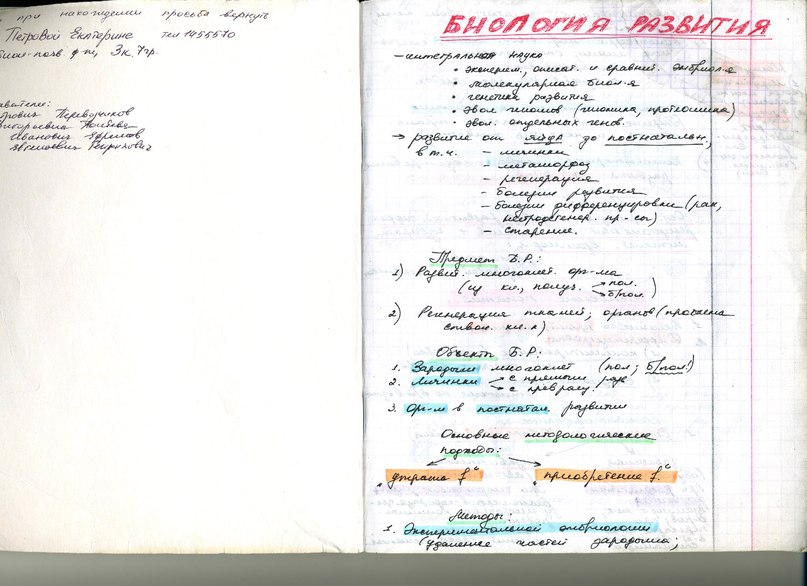 при нахождении просьба вернуть
Петровой Екатерине тел 1455570
3к. 7гр.
Переводчиков
Иванович Ефимов
БИОЛОГИЯ РАЗВИТИЯ
– интегральная наука
• эксперим., описат. и сравнит. эмбриол-я
• молекулярная биол-я
• генетика развития
• эвол. геномов (геномика, протеомика)
• эвол. отдельных генов.
→ развитие от ЯЙЦА до постнатальн.,
в т.ч. – личинки
– метаморфоз
– регенерация
– болезни развития
– болезни дифференцировки (рак,
нейродегенер. пр-сы)
– старение.
Предмет Б.Р.:
1) Развит. многоклет. орг-ма
(из кл., получ. → пол. → б/пол.)
2) Регенерация тканей, органов (проблема
ствол. кл.)
Объекты Б.Р:
1. Зародыши многоклет (пол; б/пол!)
2. Личинки → с прямым разв → с превращ.
3. Орг-м в постнатал. развитии
Основные методологические
подходы:
„утрата f“ „приобретение f.“
Методы:
1. Экспериментальной эмбриологии
(удаление частей зародыша;